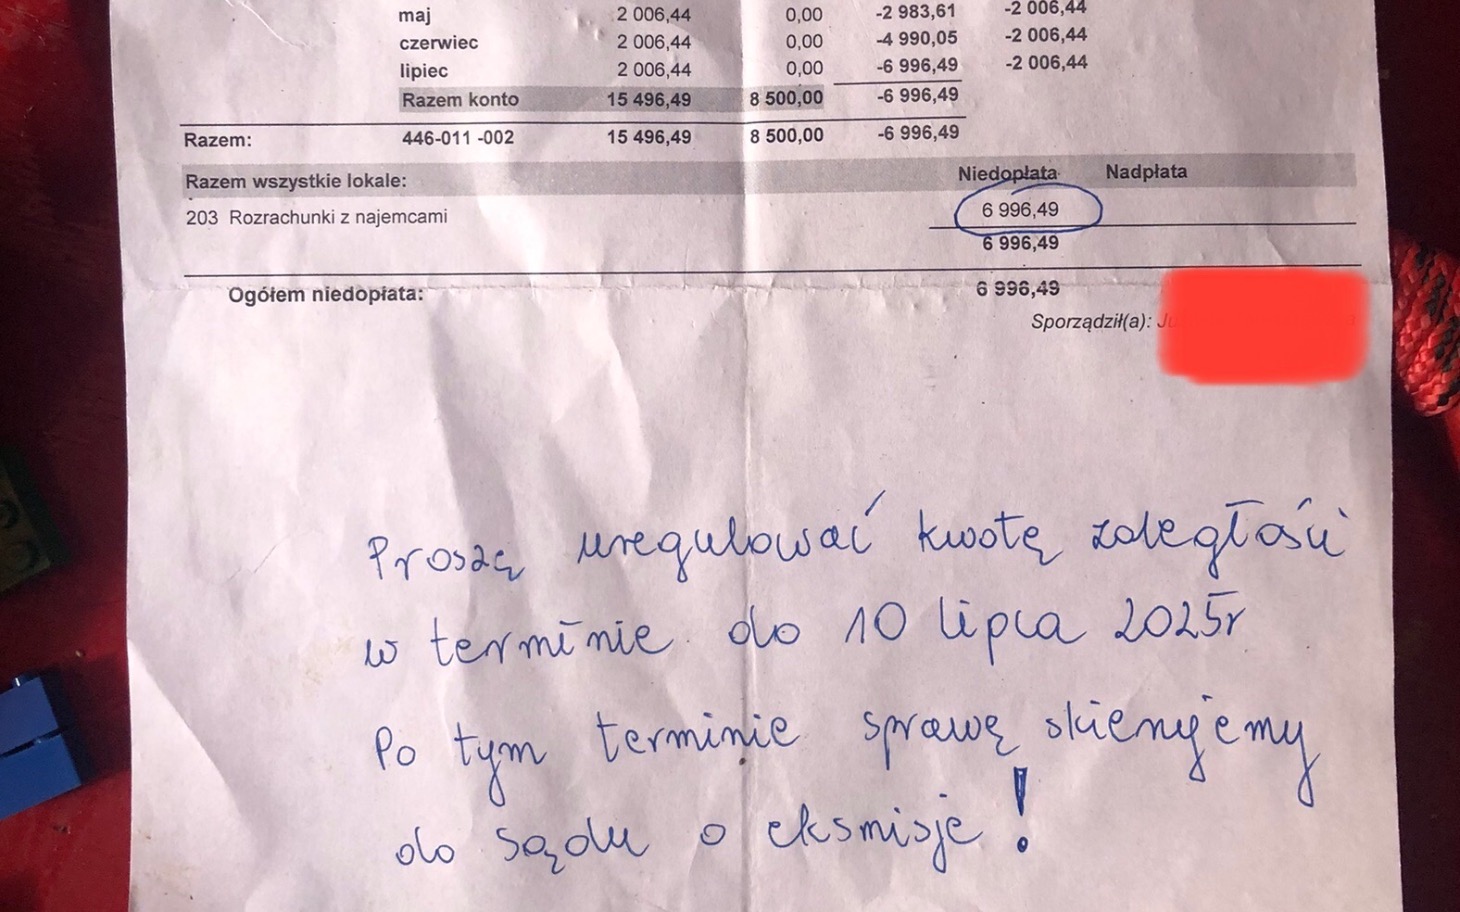 maj 2 006,44 0,00 -2 983,61 -2 006,44
czerwiec 2 006,44 0,00 -4 990,05 -2 006,44
lipiec 2 006,44 0,00 -6 996,49 -2 006,44
Razem konto 15 496,49 8 500,00 -6 996,49
Razem: 446-011 -002 15 496,49 8 500,00 -6 996,49
Razem wszystkie lokale: Niedopłata Nadpłata
203 Rozrachunki z najemcami 6 996,49
6 996,49
Ogółem niedopłata: 6 996,49
Sporządził(a):
Proszę uregulować kwotę zaległości
w terminie do 10 lipca 2025r
Po tym terminie sprawę skierujemy
do sądu o eksmisję!